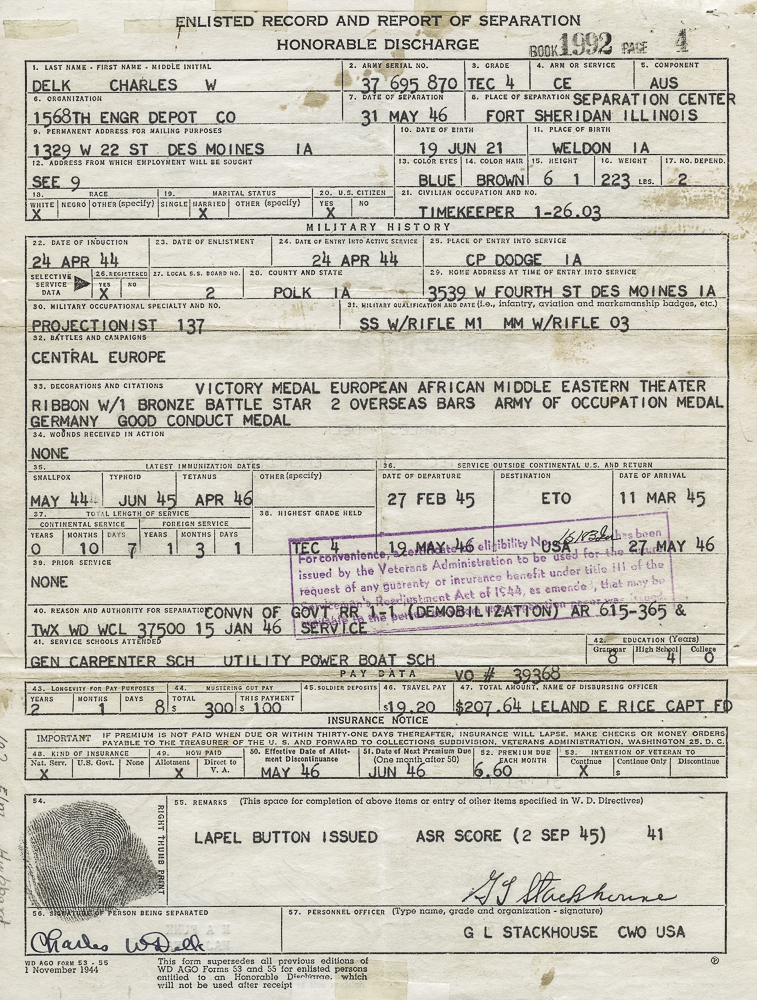 ENLISTED RECORD AND REPORT OF SEPARATION
HONORABLE DISCHARGE
BOOK 1992 PAGE 4
1. LAST NAME - FIRST NAME - MIDDLE INITIAL 2. ARMY SERIAL NO. 3. GRADE 4. ARM OR SERVICE 5. COMPONENT
DELK CHARLES W 37 695 870 TEC 4 CE AUS
6. ORGANIZATION 7. DATE OF SEPARATION 8. PLACE OF SEPARATION SEPARATION CENTER
1568TH ENGR DEPOT CO 31 MAY 46 FORT SHERIDAN ILLINOIS
9. PERMANENT ADDRESS FOR MAILING PURPOSES 10. DATE OF BIRTH 11. PLACE OF BIRTH
1329 W 22 ST DES MOINES IA 19 JUN 21 WELDON IA
12. ADDRESS FROM WHICH EMPLOYMENT WILL BE SOUGHT 13. COLOR EYES 14. COLOR HAIR 15. HEIGHT 16. WEIGHT 17. NO. DEPEND.
SEE 9 BLUE BROWN 6 1 223 LBS. 2
18. RACE 19. MARITAL STATUS 20. U.S. CITIZEN 21. CIVILIAN OCCUPATION AND NO.
WHITE NEGRO OTHER (specify) SINGLE MARRIED OTHER (specify) YES NO
X X X TIMEKEEPER 1-26.03
MILITARY HISTORY
22. DATE OF INDUCTION 23. DATE OF ENLISTMENT 24. DATE OF ENTRY INTO ACTIVE SERVICE 25. PLACE OF ENTRY INTO SERVICE
24 APR 44 24 APR 44 CP DODGE IA
SELECTIVE SERVICE DATA 26. REGISTERED YES NO 27. LOCAL S.S. BOARD NO. 28. COUNTY AND STATE 29. HOME ADDRESS AT TIME OF ENTRY INTO SERVICE
X 2 POLK IA 3539 W FOURTH ST DES MOINES IA
30. MILITARY OCCUPATIONAL SPECIALTY AND NO. 31. MILITARY QUALIFICATION AND DATE (i.e., infantry, aviation and marksmanship badges, etc.)
PROJECTIONIST 137 SS W/RIFLE M1 MM W/RIFLE 03
32. BATTLES AND CAMPAIGNS
CENTRAL EUROPE
33. DECORATIONS AND CITATIONS VICTORY MEDAL EUROPEAN AFRICAN MIDDLE EASTERN THEATER
RIBBON W/1 BRONZE BATTLE STAR 2 OVERSEAS BARS ARMY OF OCCUPATION MEDAL
GERMANY GOOD CONDUCT MEDAL
34. WOUNDS RECEIVED IN ACTION
NONE
35. LATEST IMMUNIZATION DATES 36. SERVICE OUTSIDE CONTINENTAL U.S. AND RETURN
SMALLPOX TYPHOID TETANUS OTHER (specify) DATE OF DEPARTURE DESTINATION DATE OF ARRIVAL
MAY 44 JUN 45 APR 46 27 FEB 45 ETO 11 MAR 45
37. TOTAL LENGTH OF SERVICE 38. HIGHEST GRADE HELD
CONTINENTAL SERVICE FOREIGN SERVICE
YEARS MONTHS DAYS YEARS MONTHS DAYS
0 10 7 1 3 1 TEC 4 19 MAY 46 USA 27 MAY 46
For convenience, a certificate of eligibility No. has been
issued by the Veterans Administration to be used for the future
request of any guaranty or insurance benefit under title III of the
Servicemen's Readjustment Act of 1944, as amended, that may be
39. PRIOR SERVICE
NONE
40. REASON AND AUTHORITY FOR SEPARATION CONVN OF GOVT RR 1-1 (DEMOBILIZATION) AR 615-365 &
TWX WD WCL 37500 15 JAN 46 SERVICE
41. SERVICE SCHOOLS ATTENDED 42. EDUCATION (Years)
Grammar High School College
GEN CARPENTER SCH UTILITY POWER BOAT SCH 8 4 0
PAY DATA VO # 39368
43. LONGEVITY FOR PAY PURPOSES 44. MUSTERING OUT PAY 45. SOLDIER DEPOSITS 46. TRAVEL PAY 47. TOTAL AMOUNT, NAME OF DISBURSING OFFICER
YEARS MONTHS DAYS TOTAL THIS PAYMENT
2 1 8 $ 300 $ 100 $19.20 $207.64 LELAND E RICE CAPT FD
INSURANCE NOTICE
IMPORTANT IF PREMIUM IS NOT PAID WHEN DUE OR WITHIN THIRTY-ONE DAYS THEREAFTER, INSURANCE WILL LAPSE. MAKE CHECKS OR MONEY ORDERS
PAYABLE TO THE TREASURER OF THE U. S. AND FORWARD TO COLLECTIONS SUBDIVISION, VETERANS ADMINISTRATION, WASHINGTON 25, D. C.
48. KIND OF INSURANCE 49. HOW PAID 50. Effective Date of Allotment Discontinuance 51. Date of Next Premium Due (One month after 50) 52. PREMIUM DUE EACH MONTH 53. INTENTION OF VETERAN TO
Nat. Serv. U.S. Govt. None Allotment Direct to V. A. Continue Continue Only Discontinue
X X MAY 46 JUN 46 6.60 X $
54. 55. REMARKS (This space for completion of above items or entry of other items specified in W. D. Directives)
RIGHT THUMB PRINT
LAPEL BUTTON ISSUED ASR SCORE (2 SEP 45) 41
G L Stackhouse
56. SIGNATURE OF PERSON BEING SEPARATED 57. PERSONNEL OFFICER (Type name, grade and organization - signature)
Charles W Delk G L STACKHOUSE CWO USA
WD AGO FORM 53 - 55
1 November 1944
This form supersedes all previous editions of
WD AGO Forms 53 and 55 for enlisted persons
entitled to an Honorable Discharge, which
will not be used after receipt